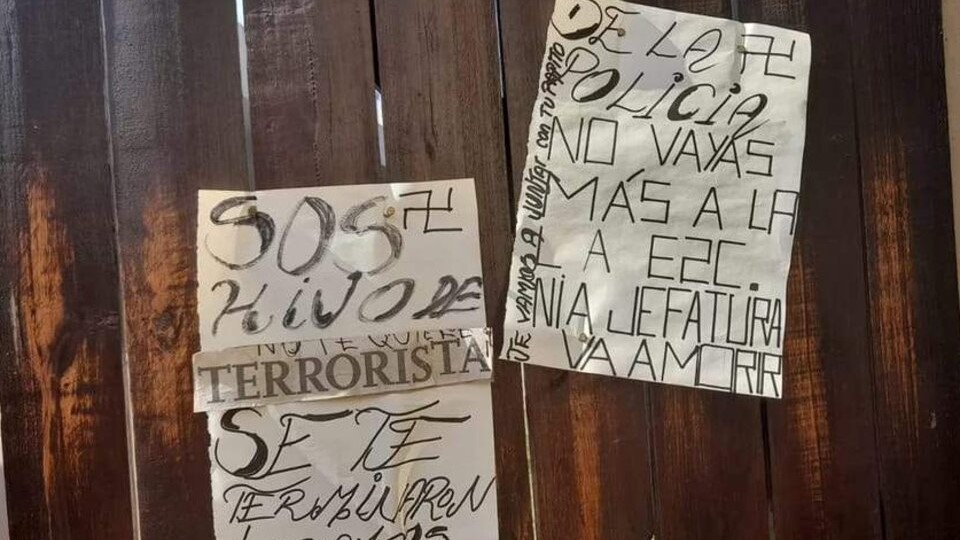 SOS
HiJO DE
NO TE QUIERE
TERRORISTA
SE TE
TERMiNARON
DE LA
POLiCiA
NO VAYAS
MÁS A LA
LA E2C.
NI A JEFATURA
VA A MORR
TE VAMOS A JUNTAR con TU PAPITO